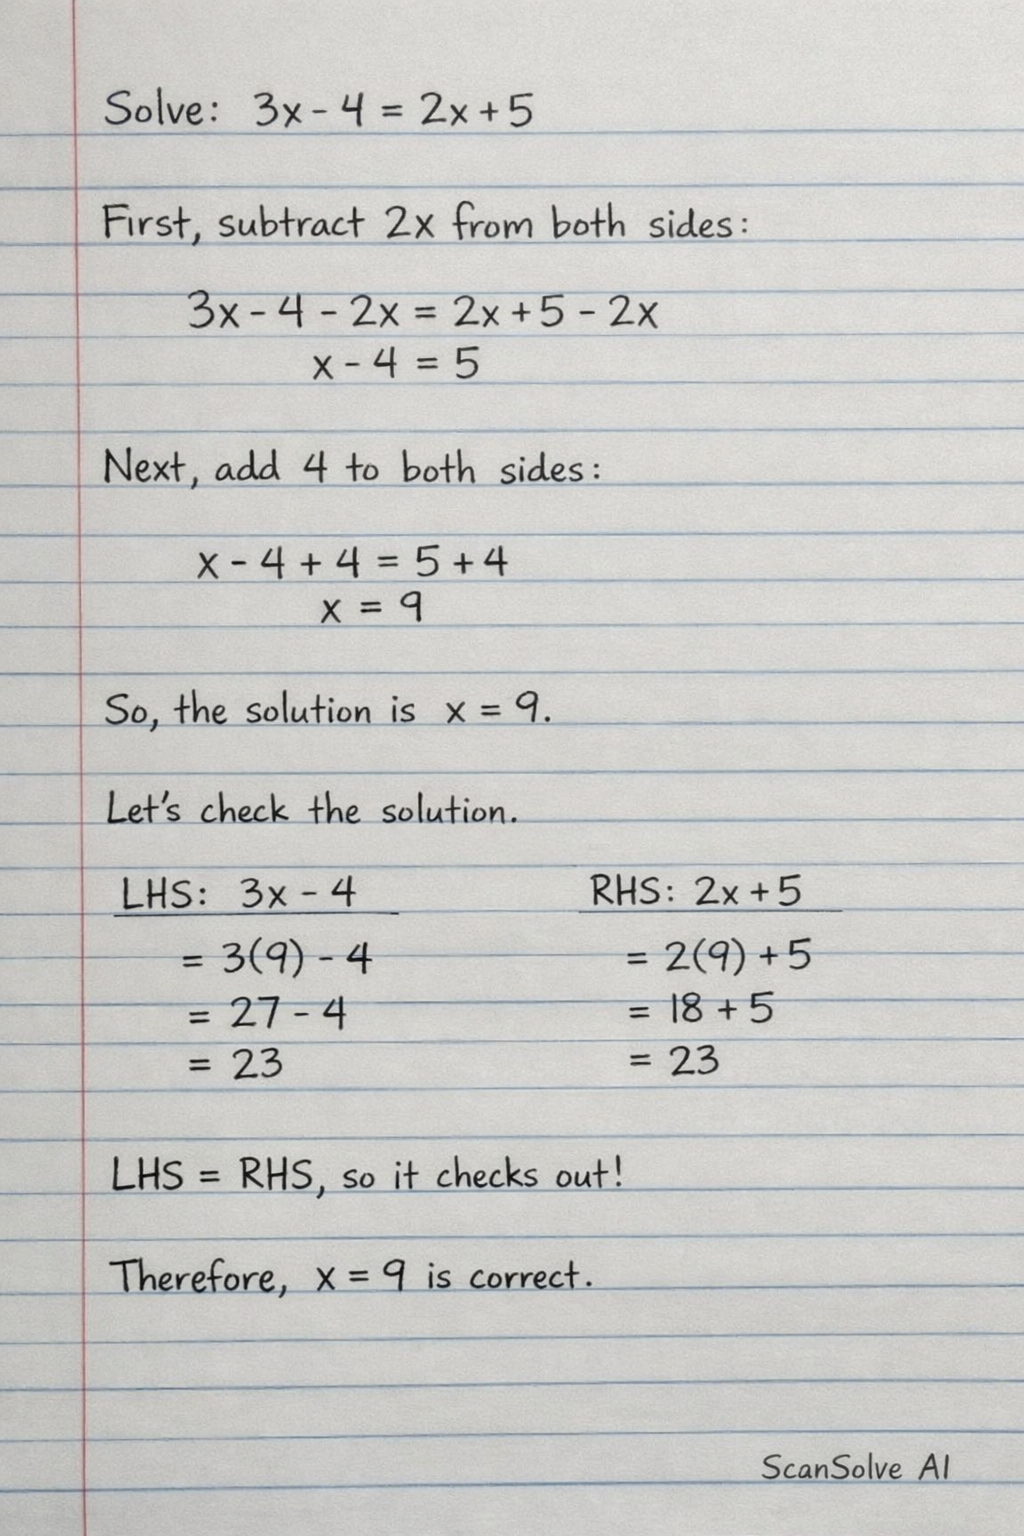 Solve: 3x - 4 = 2x + 5
First, subtract 2x from both sides:
3x - 4 - 2x = 2x + 5 - 2x
x - 4 = 5
Next, add 4 to both sides:
x - 4 + 4 = 5 + 4
x = 9
So, the solution is x = 9.
Let's check the solution.
LHS: 3x - 4
= 3(9) - 4
= 27 - 4
= 23
RHS: 2x + 5
= 2(9) + 5
= 18 + 5
= 23
LHS = RHS, so it checks out!
Therefore, x = 9 is correct.
ScanSolve AI